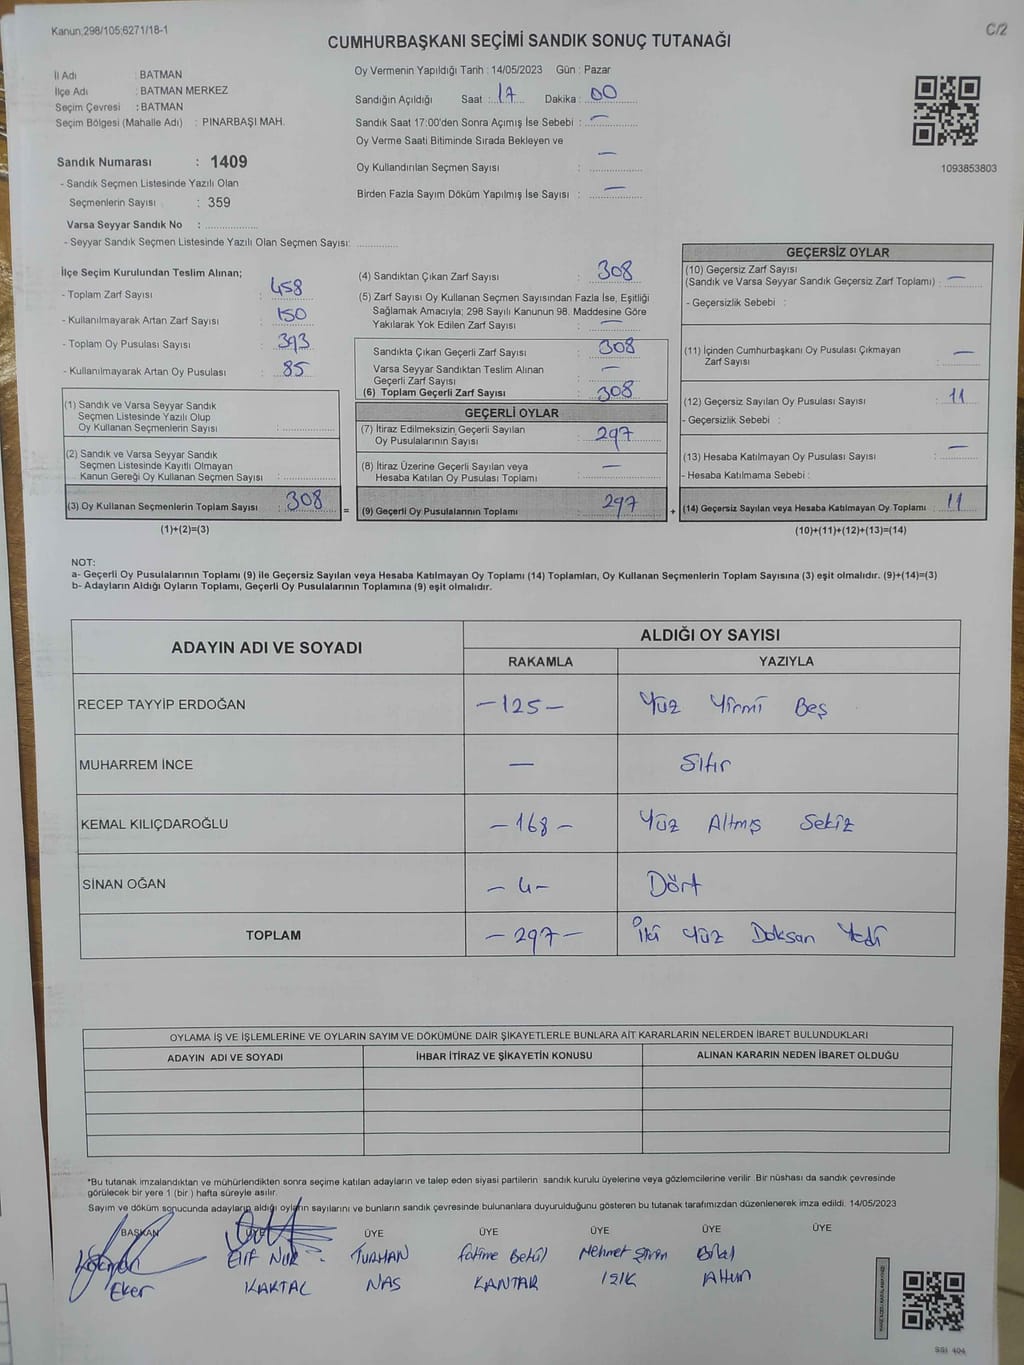 Kanun;298/105;6271/18-1
C/2
CUMHURBAŞKANI SEÇİMİ SANDIK SONUÇ TUTANAĞI
İl Adı : BATMAN
İlçe Adı : BATMAN MERKEZ
Seçim Çevresi : BATMAN
Seçim Bölgesi (Mahalle Adı) : PINARBAŞI MAH.
Sandık Numarası : 1409
- Sandık Seçmen Listesinde Yazılı Olan
Seçmenlerin Sayısı : 359
Varsa Seyyar Sandık No : ..............
- Seyyar Sandık Seçmen Listesinde Yazılı Olan Seçmen Sayısı: ..............
Oy Vermenin Yapıldığı Tarih : 14/05/2023 Gün : Pazar
Sandığın Açıldığı Saat : 17 Dakika : 00
Sandık Saat 17:00'den Sonra Açımış İse Sebebi : —
Oy Verme Saati Bitiminde Sırada Bekleyen ve
Oy Kullandırılan Seçmen Sayısı : —
Birden Fazla Sayım Döküm Yapılmış İse Sayısı : —
1093853803
İlçe Seçim Kurulundan Teslim Alınan;
- Toplam Zarf Sayısı : 458
- Kullanılmayarak Artan Zarf Sayısı : 150
- Toplam Oy Pusulası Sayısı : 393
- Kullanılmayarak Artan Oy Pusulası : 85
(1) Sandık ve Varsa Seyyar Sandık
Seçmen Listesinde Yazılı Olup
Oy Kullanan Seçmenlerin Sayısı : ..............
(2) Sandık ve Varsa Seyyar Sandık
Seçmen Listesinde Kayıtlı Olmayan
Kanun Gereği Oy Kullanan Seçmen Sayısı : ..............
(3) Oy Kullanan Seçmenlerin Toplam Sayısı : 308 =
(1)+(2)=(3)
(4) Sandıktan Çıkan Zarf Sayısı : 308
(5) Zarf Sayısı Oy Kullanan Seçmen Sayısından Fazla İse, Eşitliği
Sağlamak Amacıyla; 298 Sayılı Kanunun 98. Maddesine Göre
Yakılarak Yok Edilen Zarf Sayısı : —
Sandıkta Çıkan Geçerli Zarf Sayısı : 308
Varsa Seyyar Sandıktan Teslim Alınan
Geçerli Zarf Sayısı : —
(6) Toplam Geçerli Zarf Sayısı : 308
GEÇERLİ OYLAR
(7) İtiraz Edilmeksizin Geçerli Sayılan
Oy Pusulalarının Sayısı : 297
(8) İtiraz Üzerine Geçerli Sayılan veya
Hesaba Katılan Oy Pusulası Toplamı : —
(9) Geçerli Oy Pusulalarının Toplamı : 297 +
GEÇERSİZ OYLAR
(10) Geçersiz Zarf Sayısı
(Sandık ve Varsa Seyyar Sandık Geçersiz Zarf Toplamı) : —
- Geçersizlik Sebebi :
(11) İçinden Cumhurbaşkanı Oy Pusulası Çıkmayan
Zarf Sayısı : —
(12) Geçersiz Sayılan Oy Pusulası Sayısı : 11
- Geçersizlik Sebebi :
(13) Hesaba Katılmayan Oy Pusulası Sayısı : —
- Hesaba Katılmama Sebebi :
(14) Geçersiz Sayılan veya Hesaba Katılmayan Oy Toplamı : 11
(10)+(11)+(12)+(13)=(14)
NOT:
a- Geçerli Oy Pusulalarının Toplamı (9) ile Geçersiz Sayılan veya Hesaba Katılmayan Oy Toplamı (14) Toplamları, Oy Kullanan Seçmenlerin Toplam Sayısına (3) eşit olmalıdır. (9)+(14)=(3)
b- Adayların Aldığı Oyların Toplamı, Geçerli Oy Pusulalarının Toplamına (9) eşit olmalıdır.
ADAYIN ADI VE SOYADI
ALDIĞI OY SAYISI
RAKAMLA YAZIYLA
RECEP TAYYİP ERDOĞAN - 125 - Yüz Yirmi Beş
MUHARREM İNCE — Sıfır
KEMAL KILIÇDAROĞLU - 168 - Yüz Altmış Sekiz
SİNAN OĞAN - 4 - Dört
TOPLAM - 297 - İki Yüz Doksan Yedi
OYLAMA İŞ VE İŞLEMLERİNE VE OYLARIN SAYIM VE DÖKÜMÜNE DAİR ŞİKAYETLERLE BUNLARA AİT KARARLARIN NELERDEN İBARET BULUNDUKLARI
ADAYIN ADI VE SOYADI İHBAR İTİRAZ VE ŞİKAYETİN KONUSU ALINAN KARARIN NEDEN İBARET OLDUĞU
*Bu tutanak imzalandıktan ve mühürlendikten sonra seçime katılan adayların ve talep eden siyasi partilerin sandık kurulu üyelerine veya gözlemcilerine verilir. Bir nüshası da sandık çevresinde
görülecek bir yere 1 (bir ) hafta süreyle asılır.
Sayım ve döküm sonucunda adayların aldığı oyların sayılarını ve bunların sandık çevresinde bulunanlara duyurulduğunu gösteren bu tutanak tarafımızdan düzenlenerek imza edildi. 14/05/2023
BAŞKAN ÜYE ÜYE ÜYE ÜYE ÜYE ÜYE
Elif Nur TURHAN Fatime Betül Mehmet Şirin Bilal
Eker KAKTAL NAS KANTAR IŞIK Altun
SSI 404